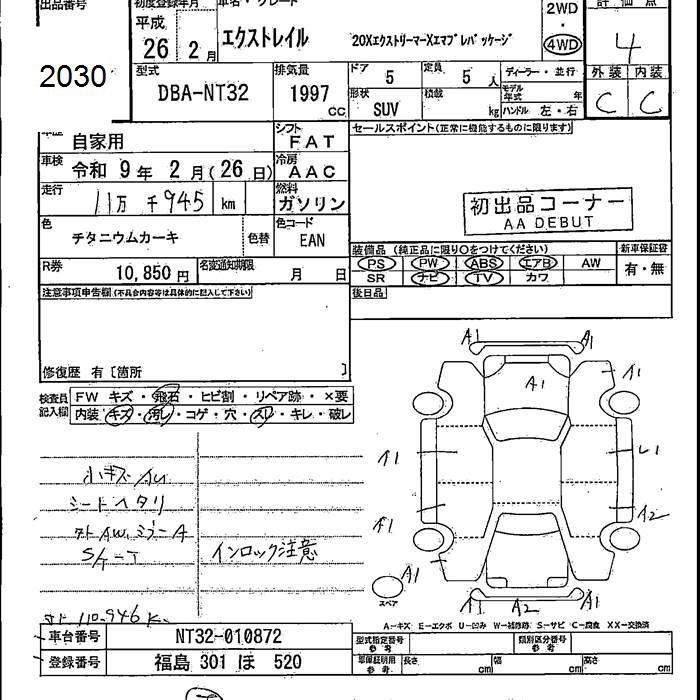 出品番号
2030
初度登録年月
平成 26 年 2 月
車名・グレード
エクストレイル 20XエクストリーマーXエマブレパッケージ
2WD
・
4WD
評価点
4
外装 内装
C C
型式
DBA-NT32
排気量
1997 CC
ドア 5
定員 5 人
形状 SUV
積載 kg
ディーラー・並行
モデル年式 年
ハンドル 左・右
自家用
シフト
FAT
車検
令和 9 年 2 月(26 日)
冷房
AAC
走行
11万 千945 km
燃料
ガソリン
色
チタニウムカーキ
色替
色コード
EAN
R券
10,850 円
名変通知期限
月 日
セールスポイント(正常に機能するものに限ります)
初出品コーナー
AA DEBUT
装備品 (純正品に限り〇をつけてください)
PS PW ABS エアB AW
SR ナビ TV カワ
新車保証書
有・無
後日品
注意事項申告欄(不具合内容等は具体的に記入して下さい)
修復歴 有 [箇所 ]
検査員記入欄
FW キズ・飛石・ヒビ割・リペア跡・×要
内装・キズ・汚レ・コゲ・穴・スレ・キレ・破レ
小キズ AU
シートヘタリ
S/T-T
インロック注意
110.946 K
A1 A1
A1
A1
A1
A1
A2
A1
A1
A2
A1
スペア
A-キズ E-エクボ U-凹み W-補修跡 S-サビ C-腐食 XX-交換済
車台番号
NT32-010872
登録番号
福島 301 ほ 520
型式指定番号 参考
類別区分番号 参考
車庫証明用 参考
長さ cm 幅 cm 高さ cm